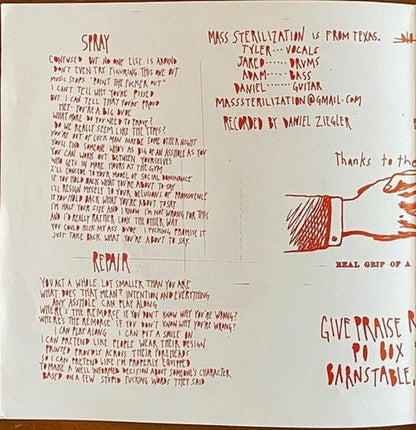 SPRAY
CONFUSED BUT NO ONE ELSE IS AROUND
DON'T EVEN TRY FIGURING THIS ONE OUT
MUSIC STOPS "POINT THE FUCKER OUT"
I CAN'T TELL WHY YOU'RE PISSED
BUT I CAN TELL THAT YOU'RE PROUD
HEY- YOU'RE A BIG DUDE
WHAT MORE DO YOU NEED TO PROVE?
DO WE REALLY SEEM LIKE THE TYPES?
YOU'RE OUT OF LUCK MAN MAYBE SOME OTHER NIGHT
YOU'LL FIND SOMEONE WHO'S AS BIG OF AN ASSHOLE AS YOU
YOU CAN WORK OUT BETWEEN YOURSELVES
WHO GETS IN MORE HOURS AT THE GYM
I'LL CONCEDE TO YOUR MODEL OF SOCIAL DOMINANCE
IF YOU HOLD BACK WHAT YOU'RE ABOUT TO SAY
I'LL RESIGN MYSELF TO YOUR DELUSIONS OF PROMINENCE
IF YOU HOLD BACK WHAT YOU'RE ABOUT TO SAY
I'M HALF YOUR SIZE AND I KNOW I'M NOT WRONG FOR THIS
AND I'D REALLY RATHER LOOK THE OTHER WAY
YOU COULD KICK MY ASS DUDE I FUCKING PROMISE IT
JUST TAKE BACK WHAT YOU'RE ABOUT TO SAY
REPAIR
YOU ACT A WHOLE LOT SMALLER THAN YOU ARE
WHAT DOES THAT MEAN? INTENTION AND EVERYTHING
ANY ASSHOLE CAN PLAY ALONG
WHERE'S THE REMORSE IF YOU DON'T KNOW WHY YOU'RE WRONG?
WHERE'S THE REMORSE IF YOU DON'T KNOW WHY YOU'RE WRONG?
I CAN PLAY ALONG I CAN PUT A SMILE ON
I CAN PRETEND LIKE PEOPLE WEAR THEIR DESIGN
PRINTED PROUDLY ACROSS THEIR FOREHEADS
SO I CAN PRETEND LIKE I'M PROPERLY EQUIPPED
TO MAKE A WELL INFORMED DECISION ABOUT SOMEONE'S CHARACTER
BASED ON A FEW STUPID FUCKING WORDS THEY SAID
MASS STERILIZATION IS FROM TEXAS.
TYLER---VOCALS
JARED-----DRUMS
ADAM-----BASS
DANIEL------GUITAR
MASSSTERILIZATION@GMAIL.COM
RECORDED BY DANIEL ZIEGLER
NO
Thanks to the
REAL GRIP OF A
GIVE PRAISE
PO BOX
BARNSTABLE,